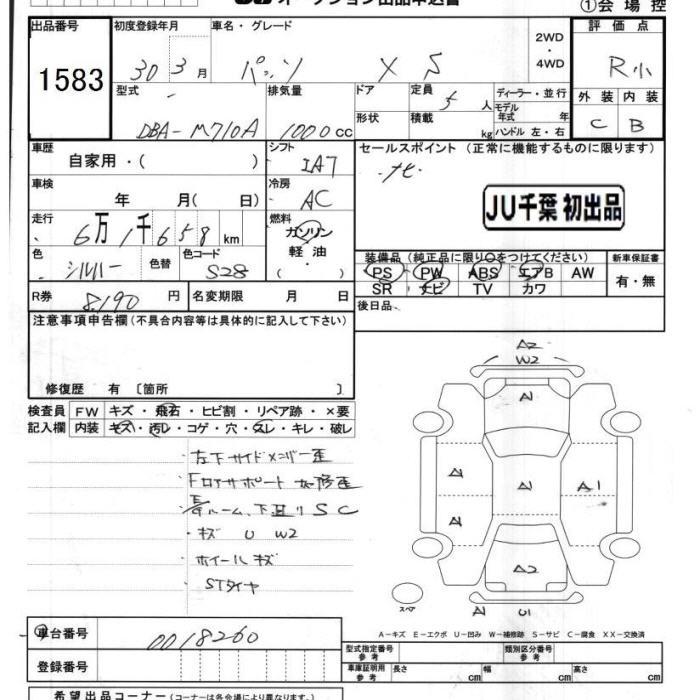 オークション出品申込書
①会場控
出品番号
初度登録年月
車名・グレード
2WD
・
4WD
評価点
1583
30 3 月
パッソ X S
R小
型式
排気量
ドア
定員
ディーラー・並行
外装
内装
DBA-M710A
1000cc
5人
モデル年式 年
C
B
形状
積載
kg
ハンドル 左・右
車歴
自家用・( )
シフト
IA7
セールスポイント (正常に機能するものに限ります)
ナビ
車検
年 月( 日)
冷房
AC
JU千葉 初出品
走行
6万1千658km
燃料
ガソリン
・
軽油
色
シルバー
色替
色コード
S28
装備品(純正品に限り○をつけてください)
新車保証書
PS PW ABS エアB AW
有・無
SR ナビ TV カワ
R券
8,190円
名変期限 月 日
後日品
注意事項申告欄(不具合内容等は具体的に記入して下さい)
修復歴 有〔箇所 〕
検査員
FW
キズ・飛石・ヒビ割・リペア跡・×要
記入欄
内装
キズ・汚レ・コゲ・穴・スレ・キレ・破レ
A2
W2
A1
A1
A1
A1
A1
A2
A1
U1
スペア
左下サイドメンバー歪
Fロアサポート 加修歪
ルーム、下廻り SC
キズ U W2
ホイールキズ
STタイヤ
A-キズ E-エクボ U-凹み W-補修跡 S-サビ C-腐食 XX-交換済
車台番号
0018260
登録番号
型式指定番号
参考
類別区分番号
参考
車庫証明用
参考
長さ cm
幅 cm
高さ cm
希望出品コーナー(コーナーは各会場により異なります。)